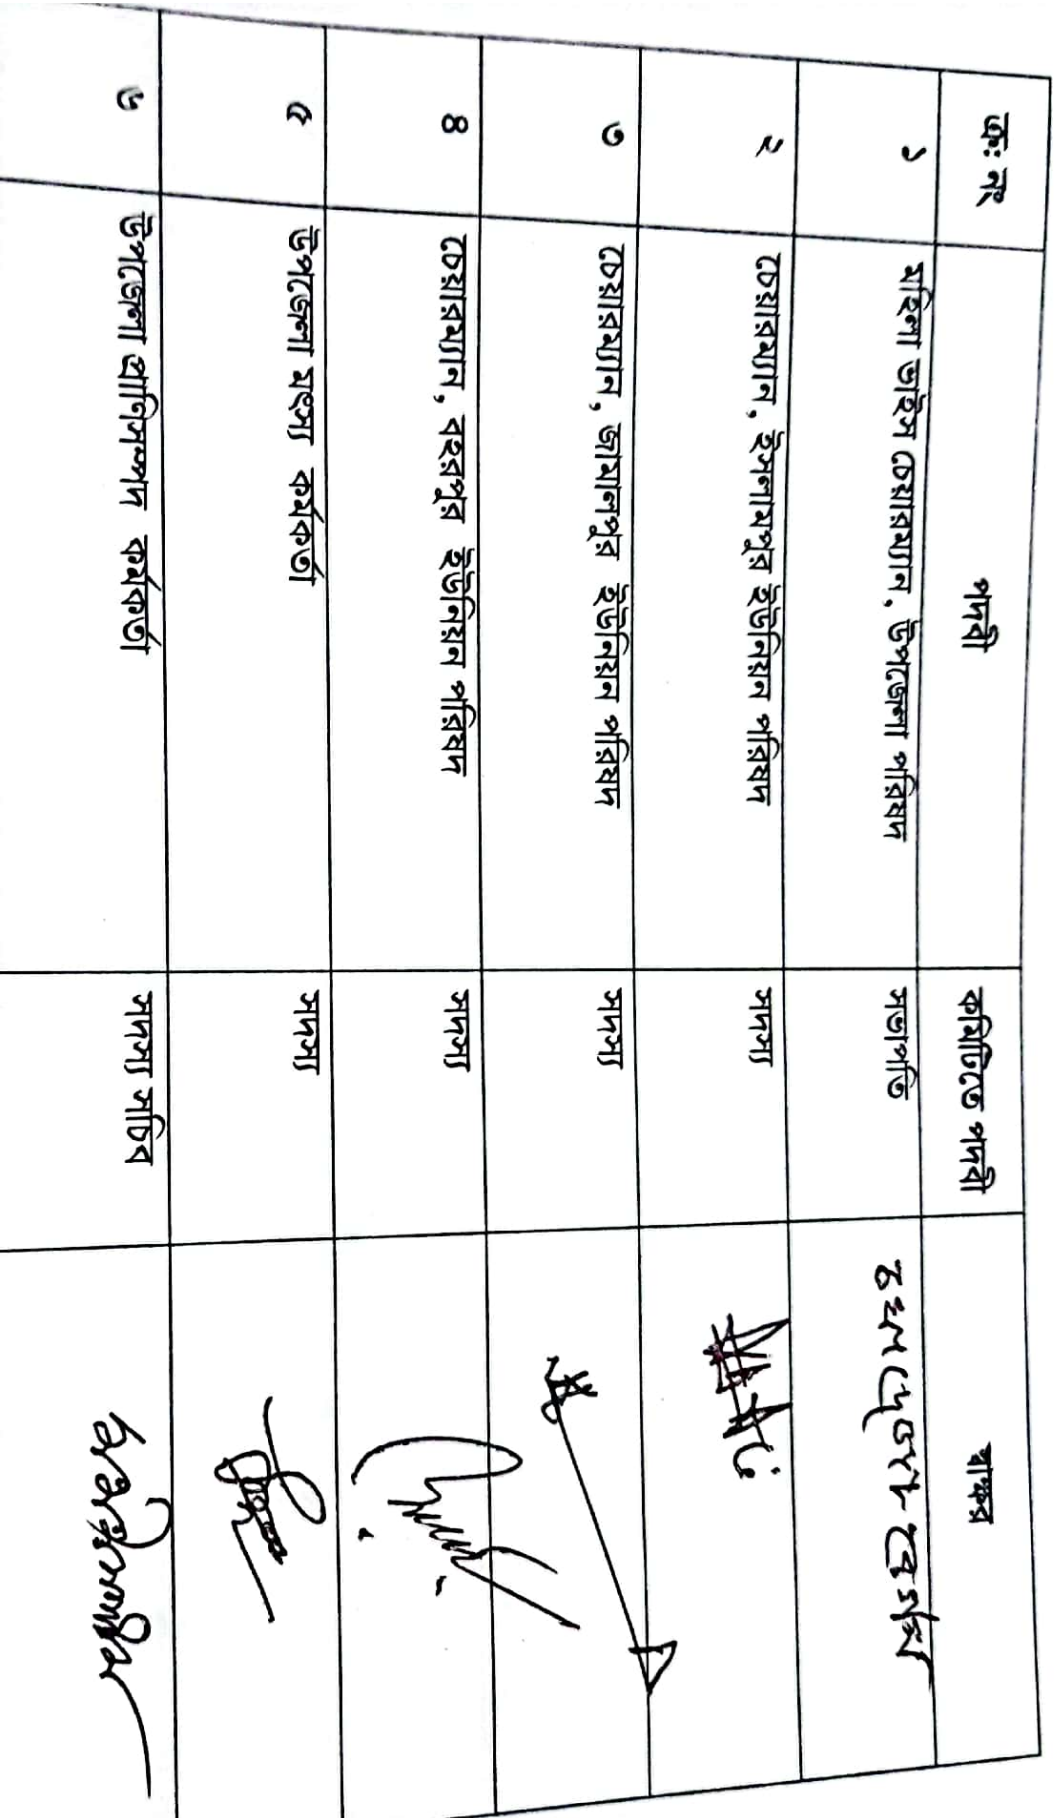 ক্র: নং পদবী কমিটিতে পদবী স্বাক্ষর
১ মহিলা ভাইস চেয়ারম্যান, উপজেলা পরিষদ সভাপতি
২ চেয়ারম্যান, ইসলামপুর ইউনিয়ন পরিষদ সদস্য
৩ চেয়ারম্যান, জামালপুর ইউনিয়ন পরিষদ সদস্য
৪ চেয়ারম্যান, বহরপুর ইউনিয়ন পরিষদ সদস্য
৫ উপজেলা মৎস্য কর্মকর্তা সদস্য
৬ উপজেলা প্রাণিসম্পদ কর্মকর্তা সদস্য সচিব